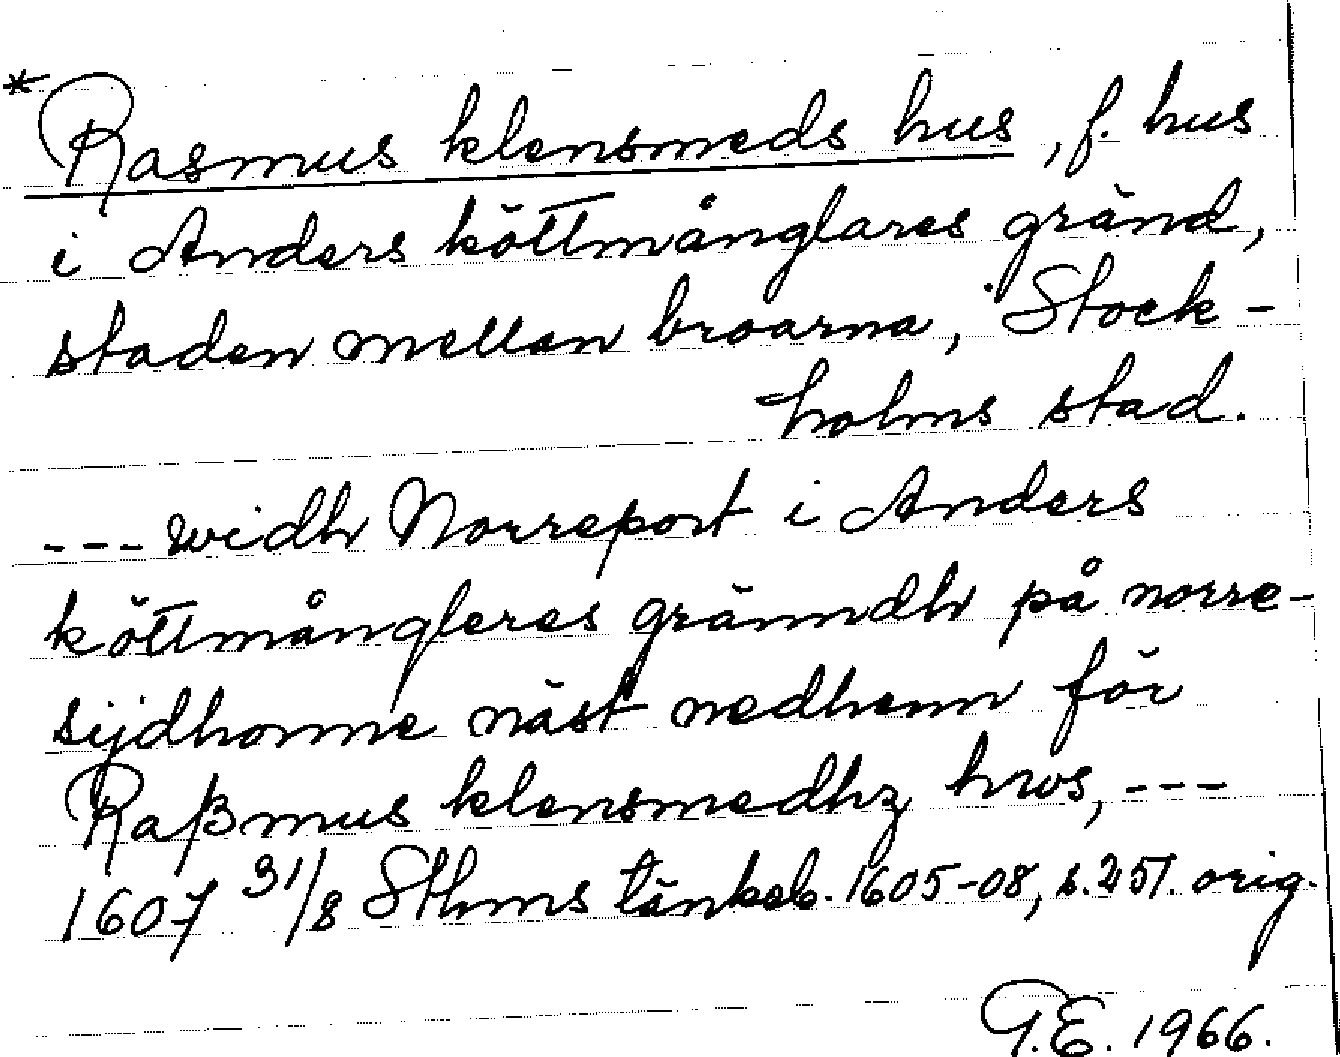 * Rasmus klensmeds hus, f. hus
i Anders köttmånglares gränd,
staden mellan broarna, Stock-
holms stad.
--- widh Norreport i Anders
köttmångleres gränndh på norre-
sijdhonne näst nedhenn för
Raßmus klensmedhz hws, ---
1607 31/8 Sthms tänkeb. 1605-08, s. 251. orig.
G.E. 1966.